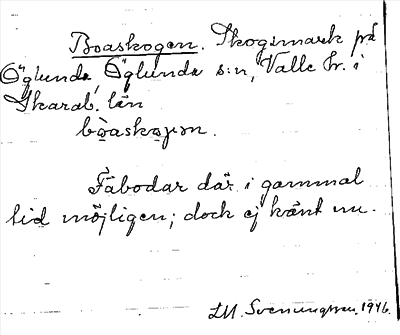 Boaskogen. Skogsmark på
Öglunda, Öglunda s:n, Valle hr. i
Skarab. län
bòaskoɡen.
Fäbodar där i gammal
tid möjligen; dock ej känt nu.
LM. Svenungsson. 1946.